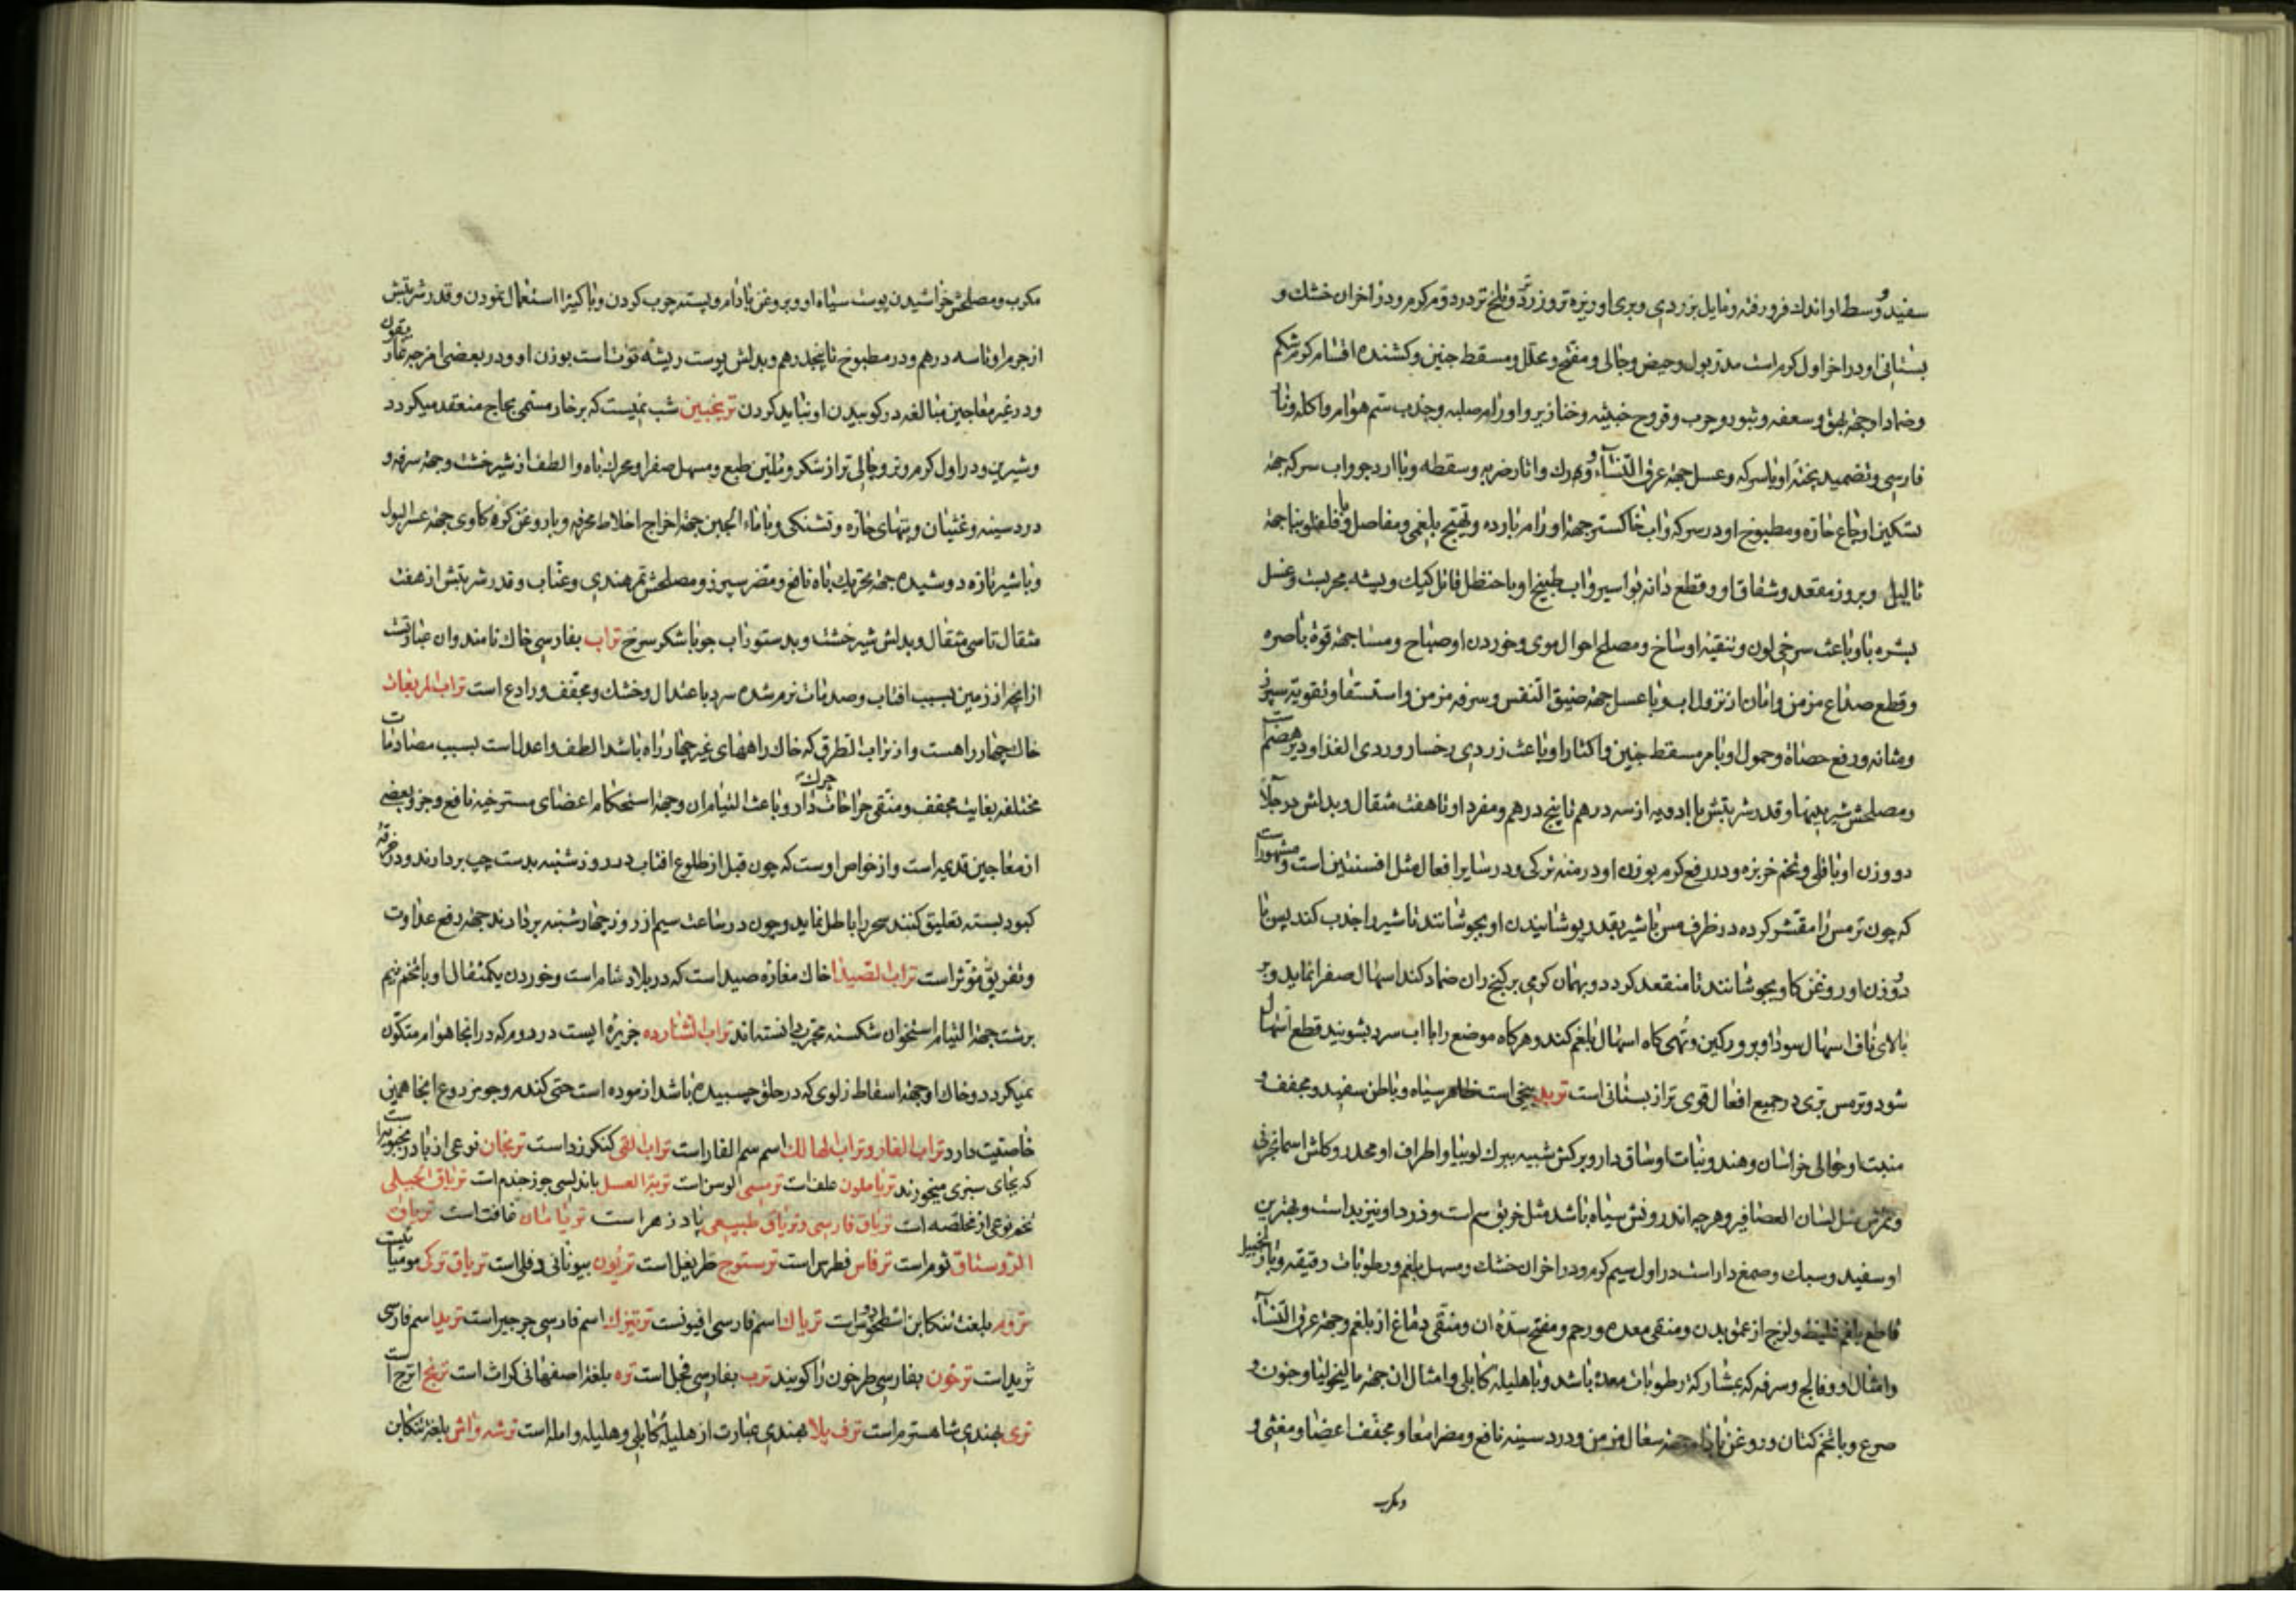 سفید و وسط او اندک فرو رفته و مایل بزردی و بری او ریزه تر و زردتر و تلخ تر در دوم کرم و در اخران خشک و
بستانی او در اخر اول کرم است مدر بول و حیض و جالی و مفتح و محلل و مسقط جنین و کشنده اقسام کرم شکم
و ضماد او جهة بهق و سعفه و بثور و جرب و قروح خبیثه و خنازیر و اورام صلبه و جذب سم هوام و اکله و نار
فارسی و تضمید پختهٔ او با سرکه و عسل جهة عرق النساء و ورک و اثار ضربه و سقطه و با ارد جو و اب سرکه جهة
تسکین اوجاع حاره و مطبوخ او در سرکه و اب خاکستر جهة اورام بارده و تهیج بلغمی و مفاصل و با قلقلونیا جهة
ثالیل و بروز مقعد و شقاق او و قطع دانه بواسیر و اب طبیخ او با حنظل قاتل کیک و پشه مجربست و غسل
بشره باو باعث سرخی لون و تنقیه اوساخ و مصلح احوال موی و خوردن او صباح و مسا جهة قوة باصره
و قطع صداع مزمن و امان از نزول اب و با عسل جهة ضیق النفس و سرفه مزمن و استسقا و تقویة سپرز
و مثانه و رفع حصاة و حمول او با مر مسقط جنین و اکثار او باعث زردی رخسار و ردی الغذا و دیر هضم است
و مصلحش شیرینیها و قدر شربتش با ادویه از سه درهم تا پنج درهم و مفرد او تا هفت مثقال و بدلش در جلا
دو وزن او باقلی و تخم خربزه و در رفع کرم بوزن او درمنه ترکی و در سایر افعال مثل افسنتین است و مشهور است
که چون ترمس را مقشر کرده در ظرف مس با شیر بقدر پوشانیدن او بجوشانند تا شیر را جذب کند پس با
دو وزن او روغن کاو بجوشانند تا منقعد کردد و بهمان کرمی بر کنج ران ضماد کنند اسهال صفرا نماید و بر
بالای ناف اسهال سودا و بر ورکین و تهی کاه اسهال بلغم کند و هر کاه موضع را با اب سرد بشویند قطع اسهال
شود و ترمس بری در جمیع افعال قوی تر از بستانی است تربد بیخی است ظاهر سیاه و باطن سفید و مجفف و
منبت او حوالی خراسان و هند و نبات او ساق دار و برکش شبیه ببرک لوبیا و اطراف او محدد و کلش اسمانجونی
و ثمرش مثل لسان العصافیر و هر چه اندرونش سیاه باشد مثل خربق سم است و زرد او نیز بد است و بهترین
او سفید و سبک و صمغ دار است در اول سیم کرم و در اخران خشک و مسهل بلغم و رطوبات رقیقه و با زنجبیل
قاطع بلغم غلیظ و لزج از عمق بدن و منقی معده و رحم و مفتح سدهٔ ان و منقی دماغ از بلغم و جهة عرق النساء
و امثال او و فالج و سرفه که بمشارکة رطوبات معده باشد و با هلیله کابلی و امثال ان جهة مالیخولیا و جنون و
صرع و با تخم کتان و روغن بادام جهة سعال مزمن و درد سینه نافع و مضر امعا و مجفف اعضا و مغثی و
و مکرب
مکرب و مصلحش خراشیدن پوست سیاه او و بروغن بادام و پسته چرب کردن و با کتیرا استعمال نمودن و قدر شربتش
از جرم او تا سه درهم و در مطبوخ تا پنجدرهم و بدلش پوست ریشه توت است بوزن او و در بعضی امزجه غاریقون
و در غیر معاجین مبالغه در کوبیدن او نباید کردن ترنجبین شب نمیست که بر خار مسمی بحاج منعقد میکردد
و شیرین و در اول کرم و تر و جالی تر از شکر و ملین طبع و مسهل صفرا و محرک باه و الطف از شیرخشت و جهة سرفه و
درد سینه و غثیان و تبهای حاره و تشنکی و با ماء الجبن جهة اخراج اخلاط محرقه و با روغن کره کاوی جهة عسر البول
و با شیر تازه دوشیده جهة تحریک باه نافع و مضر سپرز و مصلحش تمر هندی و عناب و قدر شربتش از هفت
مثقال تا سی مثقال و بدلش شیرخشت و بدستور اب جو با شکر سرخ تراب بفارسی خاک نامند و ان عبارتست
از انچه از زمین بسبب افتاب و صدمات نرم شده سرد باعتدال و خشک و مجفف و رادع است تراب المربعات
خاک چهار راهست و از تراب الطرق که خاک راههای غیر چهار راه باشد الطف و اعدل است بسبب مصادمات
مختلفه بغایت مجفف و منقی جراحات چرک دار و باعث التیام ان و جهة استحکام اعضای مسترخیه نافع و جزو بعضی
از معاجین قدیمه است و از خواص اوست که چون قبل از طلوع افتاب در روز شنبه بدست چپ بردارند و در خرقهٔ
کبود بسته تعلیق کنند سحر را باطل نماید و چون در ساعت سیم از روز چهارشنبه بردارند جهة رفع عداوت
و تفریق مؤثر است تراب الصیدا خاک مغاره صیدا است که در بلاد شام است و خوردن یکمثقال او با تخم نیم
برشت جهة التیام استخوان شکسته مجرب دانسته اند تراب الشارده جزیره ایست در روم که در انجا هوام متکون
نمیکردد و خاک او جهة اسقاط زلوی که در حلق چسبیده باشد ازموده است حتی کندم و جو مزروع انجا همین
خاصیت دارد تراب الفار و تراب الهالک اسم سم الفار است تراب القی کنکرزد است ترنجان نوعی از بادرنجبویه است
که بجای سبزی میخورند تریاملون علف است ترمسی الوسن است تربة العسل باندلسی جوز جندم است تریاق الجبلی
تخم نوعی از مخلصه است تریاق فارسی و تریاق طبیعی پادزهر است تریامان غافت است تریاق
الروستاق ثوم است ترفاس فطر است ترستوج طریغل است تریون بیونانی دفلی است تریاق ترکی مومیائیست
ترور بلغت تنکابن اسطوخودوس است تریاک اسم فارسی افیونست ترتیزک اسم فارسی جرجیر است ترید اسم فارسی
ثرید است ترخون بفارسی طرخون را کویند ترب بفارسی فجل است تره بلغة اصفهانی کراث است ترنج اترج است
تری بهندی شاهسترم است ترف پلا بهندی عبارت از هلیلهٔ کابلی و هلیله و امله است ترشه واش بلغة تنکابن